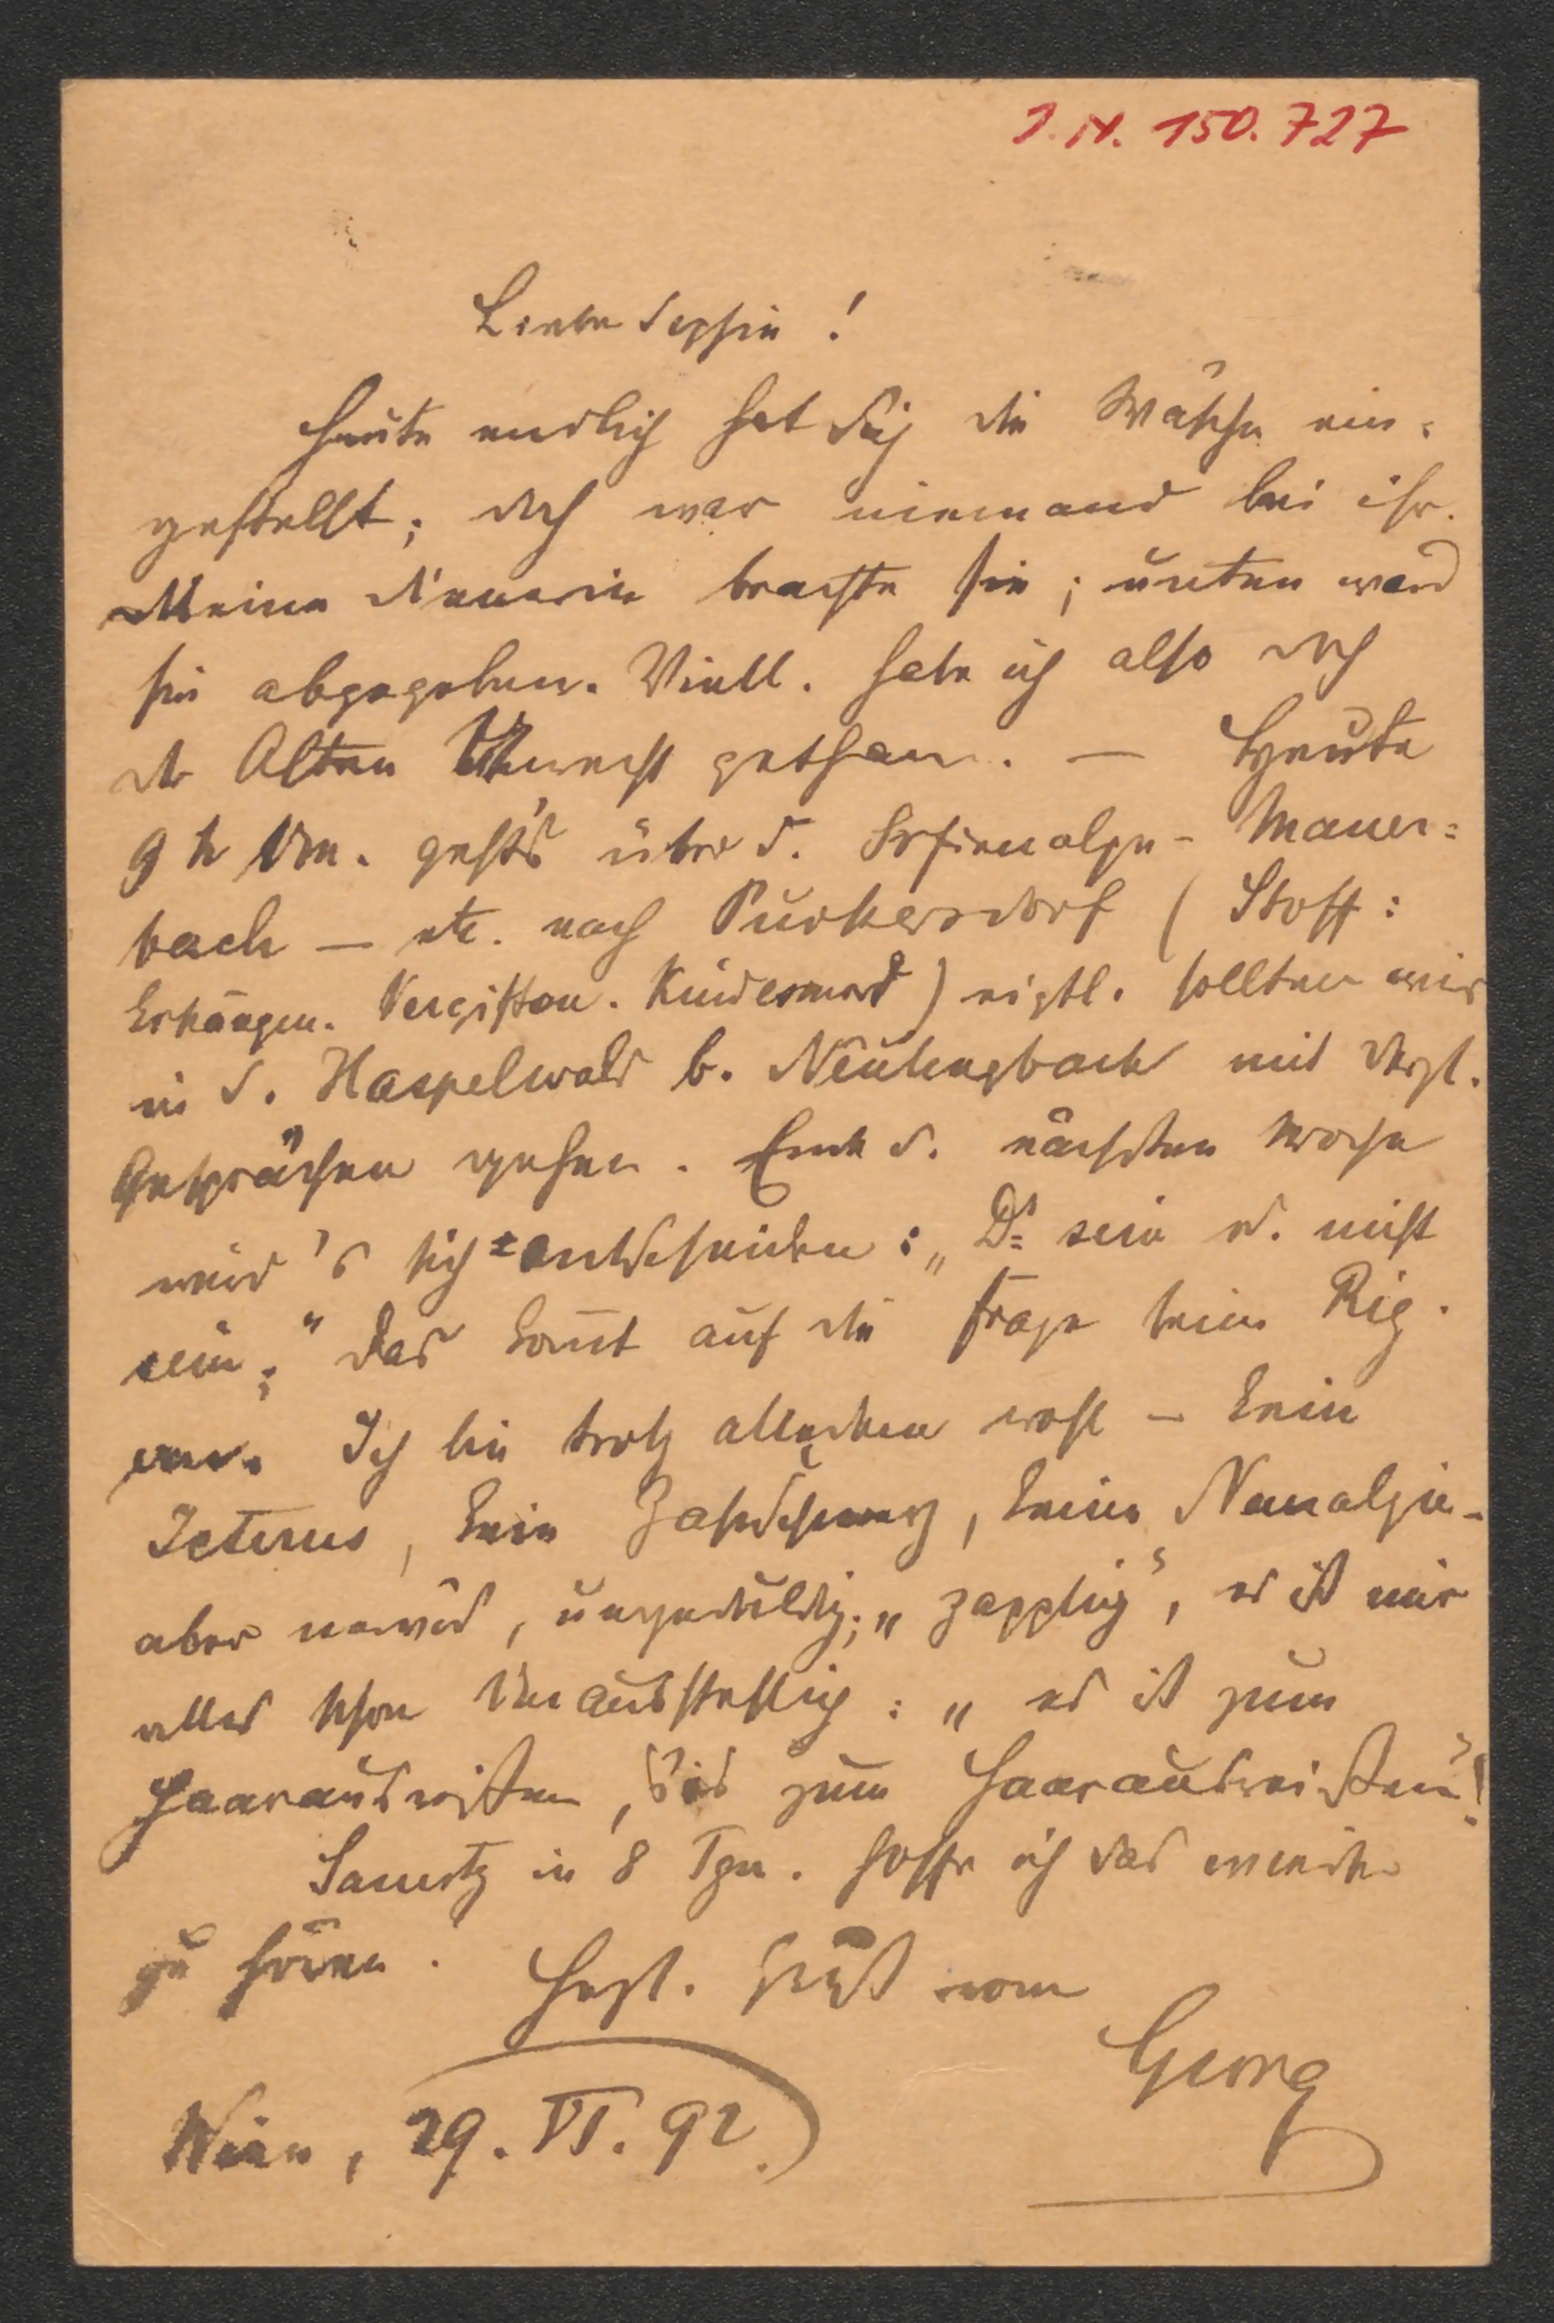 I. N. 150.727
Liebe Sephin!
Heute endlich hat sich die Wäsche ein-
gestellt; doch war niemand bei ihr.
Meine Dienerin brachte sie; unten ward
sie abgegeben. Viell. habe ich also doch
der Alten Unrecht gethan. — Heute
9 h Vm. geht's über d. Sofienalpe - Mauer=
bach — etc. nach Purkersdorf (Stoff:
Erhängen. Vergiften. Kindesmord) eigtl. sollten wir
in d. Haspelwald b. Neulengbach mit dergl.
Gesprächen gehen. Ende d. nächsten Woche
wird's sich entscheiden: „Dr sein od. nicht
sein;" das komt auf die Frage beim Rig.
an. Ich bin trotz alledem wohl — kein
Icterus, kein Zahnschmerz, keine Neuralgie -
aber nervös, ungeduldig; „zapplig", es ist mir
alles schon : „es ist zum
Haarausreißen, bis zum Haarausreißen"!
Samstg in 8 Tgn. hoffe ich das
zu hören. Herzl. Gruß vom
Georg
Wien, 29. VI. 92.